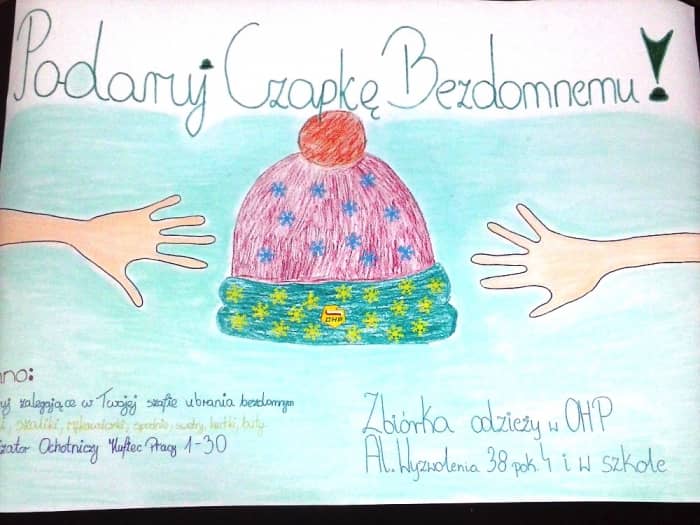 Podaruj Czapkę Bezdomnemu!
OHP
no:
uj zalegające w Twojej szafie ubrania bezdomnym
i, szaliki, rękawiczki, spodnie, swetry, kurtki, buty
izator Ochotniczy Hufiec Pracy 1-30
Zbiórka odzieży w OHP
Al. Wyzwolenia 38 pok. 4 i w szkole